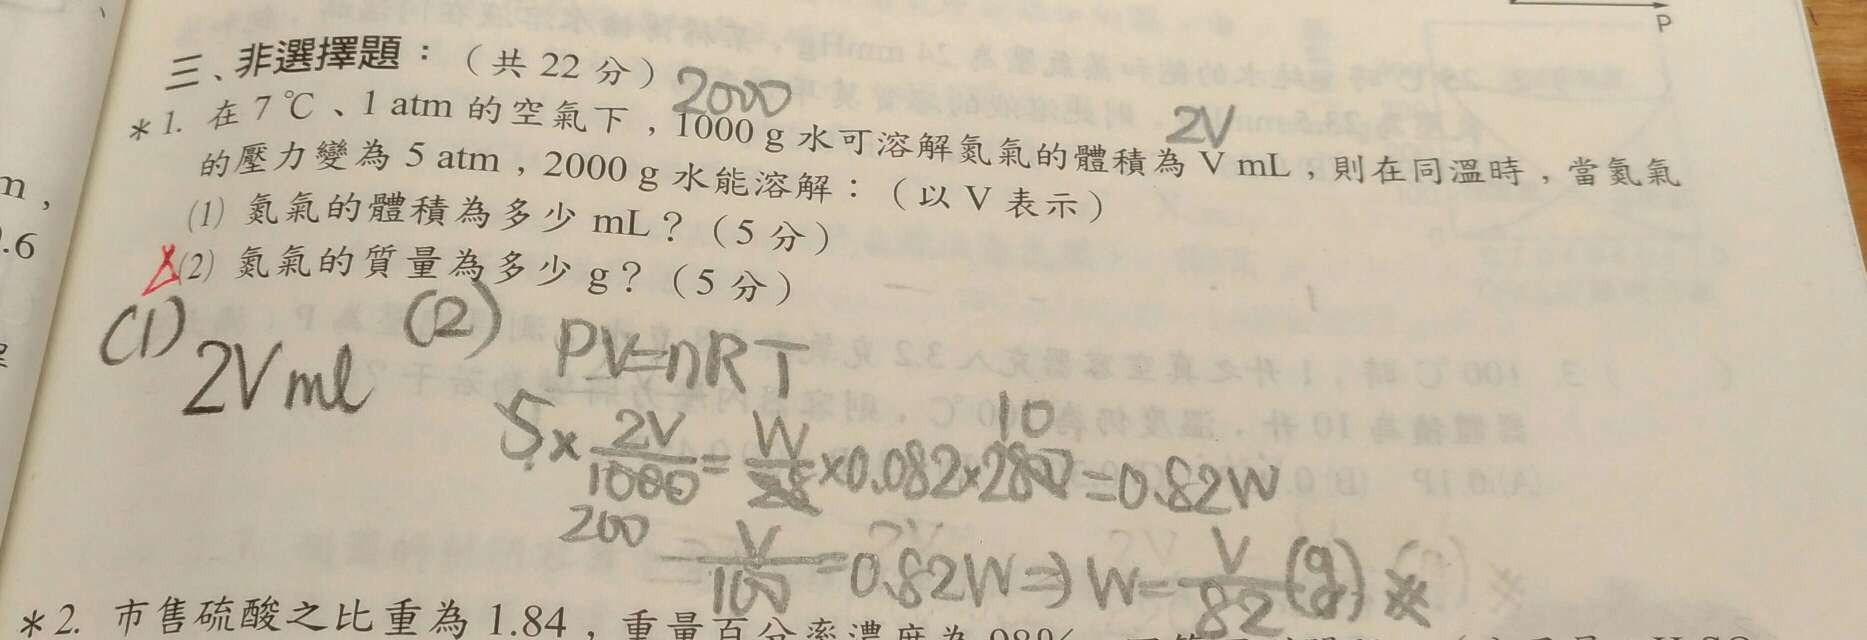 P
三、非選擇題：（共 22 分）
2000
2V
*1. 在 7 ℃、1 atm 的空氣下，1000 g 水可溶解氮氣的體積為 V mL，則在同溫時，當氮氣
的壓力變為 5 atm，2000 g 水能溶解：（以 V 表示）
(1) 氮氣的體積為多少 mL？（5 分）
(2) 氮氣的質量為多少 g？（5 分）
m，
.6
(1) 2V ml
(2) PV=nRT
10
5×2V/1000=W/28×0.082×280=0.82W
200
V/100=0.82W⇒W=V/82(g)※
*2. 市售硫酸之比重為 1.84，重量百分率濃度為 98%